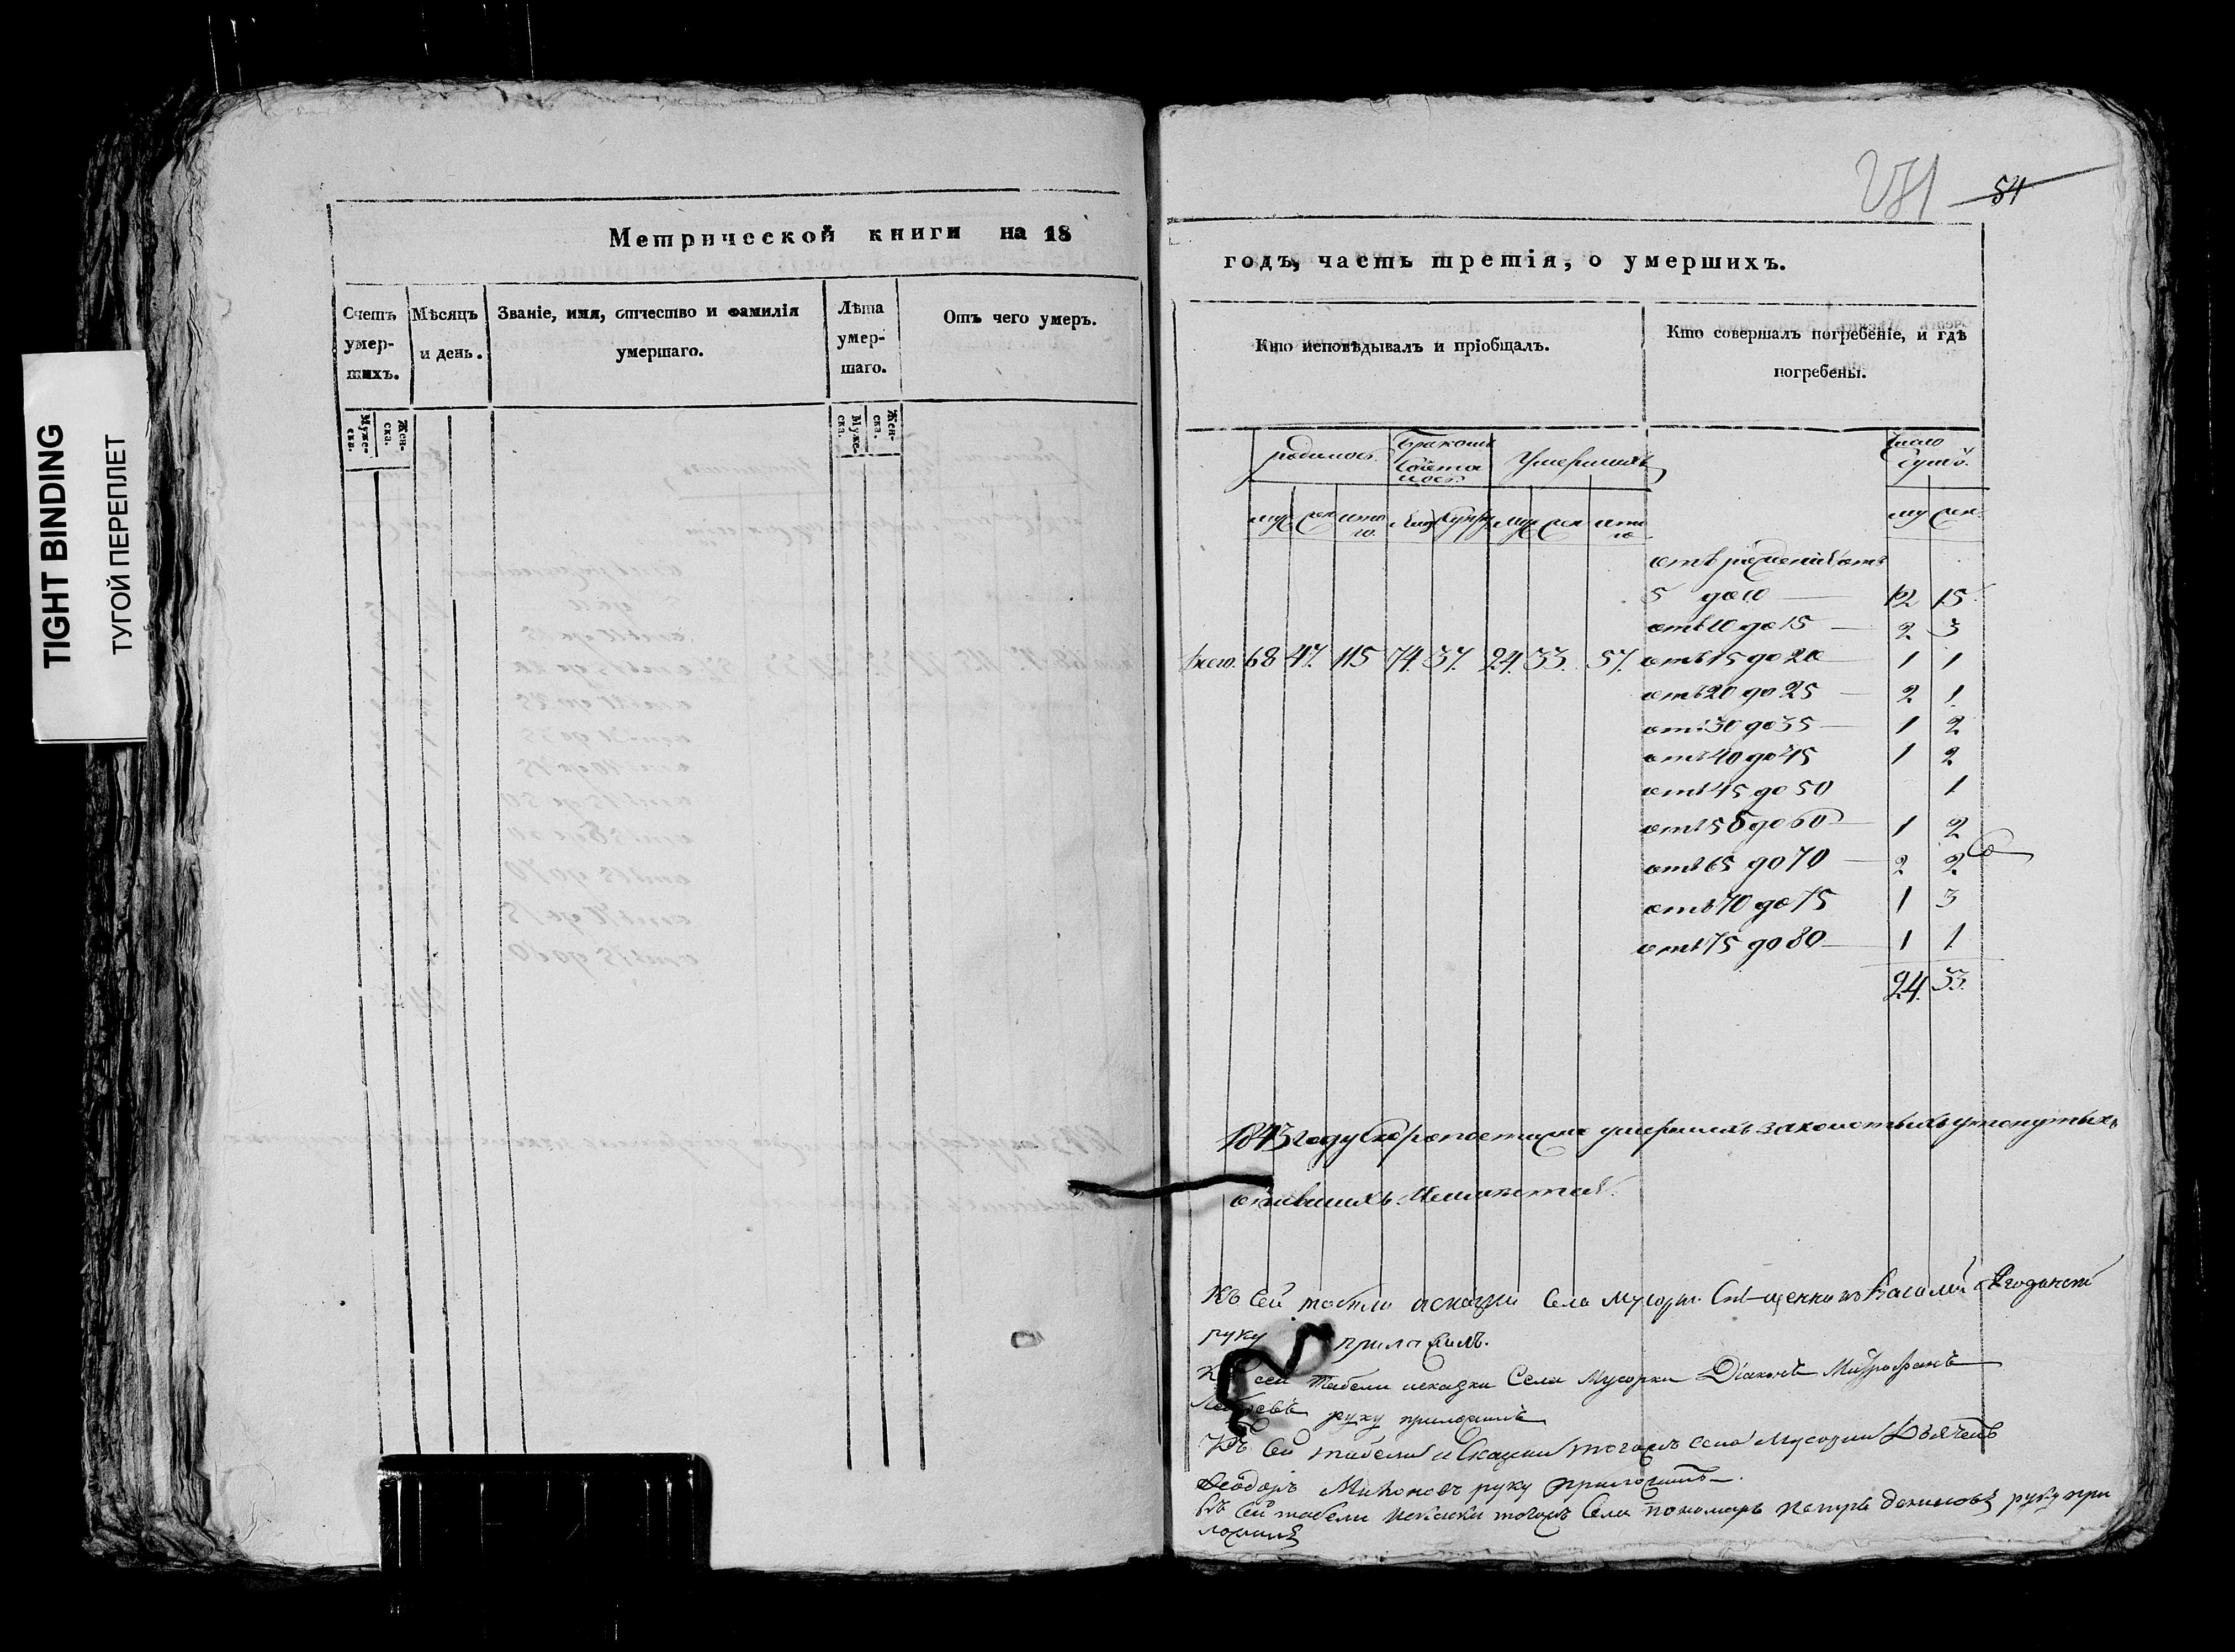 TIGHT BINDING
ТУГОЙ ПЕРЕПЛЕТ
Метрической книги на 18
Счетъ умер- шихъ.
Мѣсяцъ и день.
Званіе, имя, отчество и фамилія умершаго.
Лѣта умер- шаго.
Отъ чего умеръ.
Муже- ска.
Жен- ска.
Муже- ска.
Жен- ска.
54
годъ, часть третія, о умершихъ.
Кто исповѣдывалъ и пріобщалъ.
Кто совершалъ погребеніе, и гдѣ погребены.
родилось
Браковъ
Умершихъ
Число душъ.
муж жен итого. муж жен итого
му жен
отъ рожденія отъ
5 до 10 12 15
отъ 10 до 15 2 3
Всего. 68 47. 115 74. 37. 24. 33. 57. отъ 15 до 20 1 1
отъ 20 до 25 2 1
отъ 30 до 35 1 2
отъ 40 до 45 1 2
отъ 45 до 50 1
отъ 55 до 60 1 2
отъ 65 до 70 2 2
отъ 70 до 75 1 3
отъ 75 до 80 1 1
24. 33.
1843 году скоропостижно умершихъ
Къ сей табели Села Мусорки Священникъ Василий
руку приложилъ.
Къ сей табели и сказки Села Мусорки Діаконъ Митрофанъ
руку приложилъ
Къ сей табели и сказки тогожъ села Мусорки Дьячекъ
Ѳеодоръ Михоновъ руку приложилъ
Къ сей табели тогожъ Села пономарь Петръ Денисовъ руку при
ложилъ